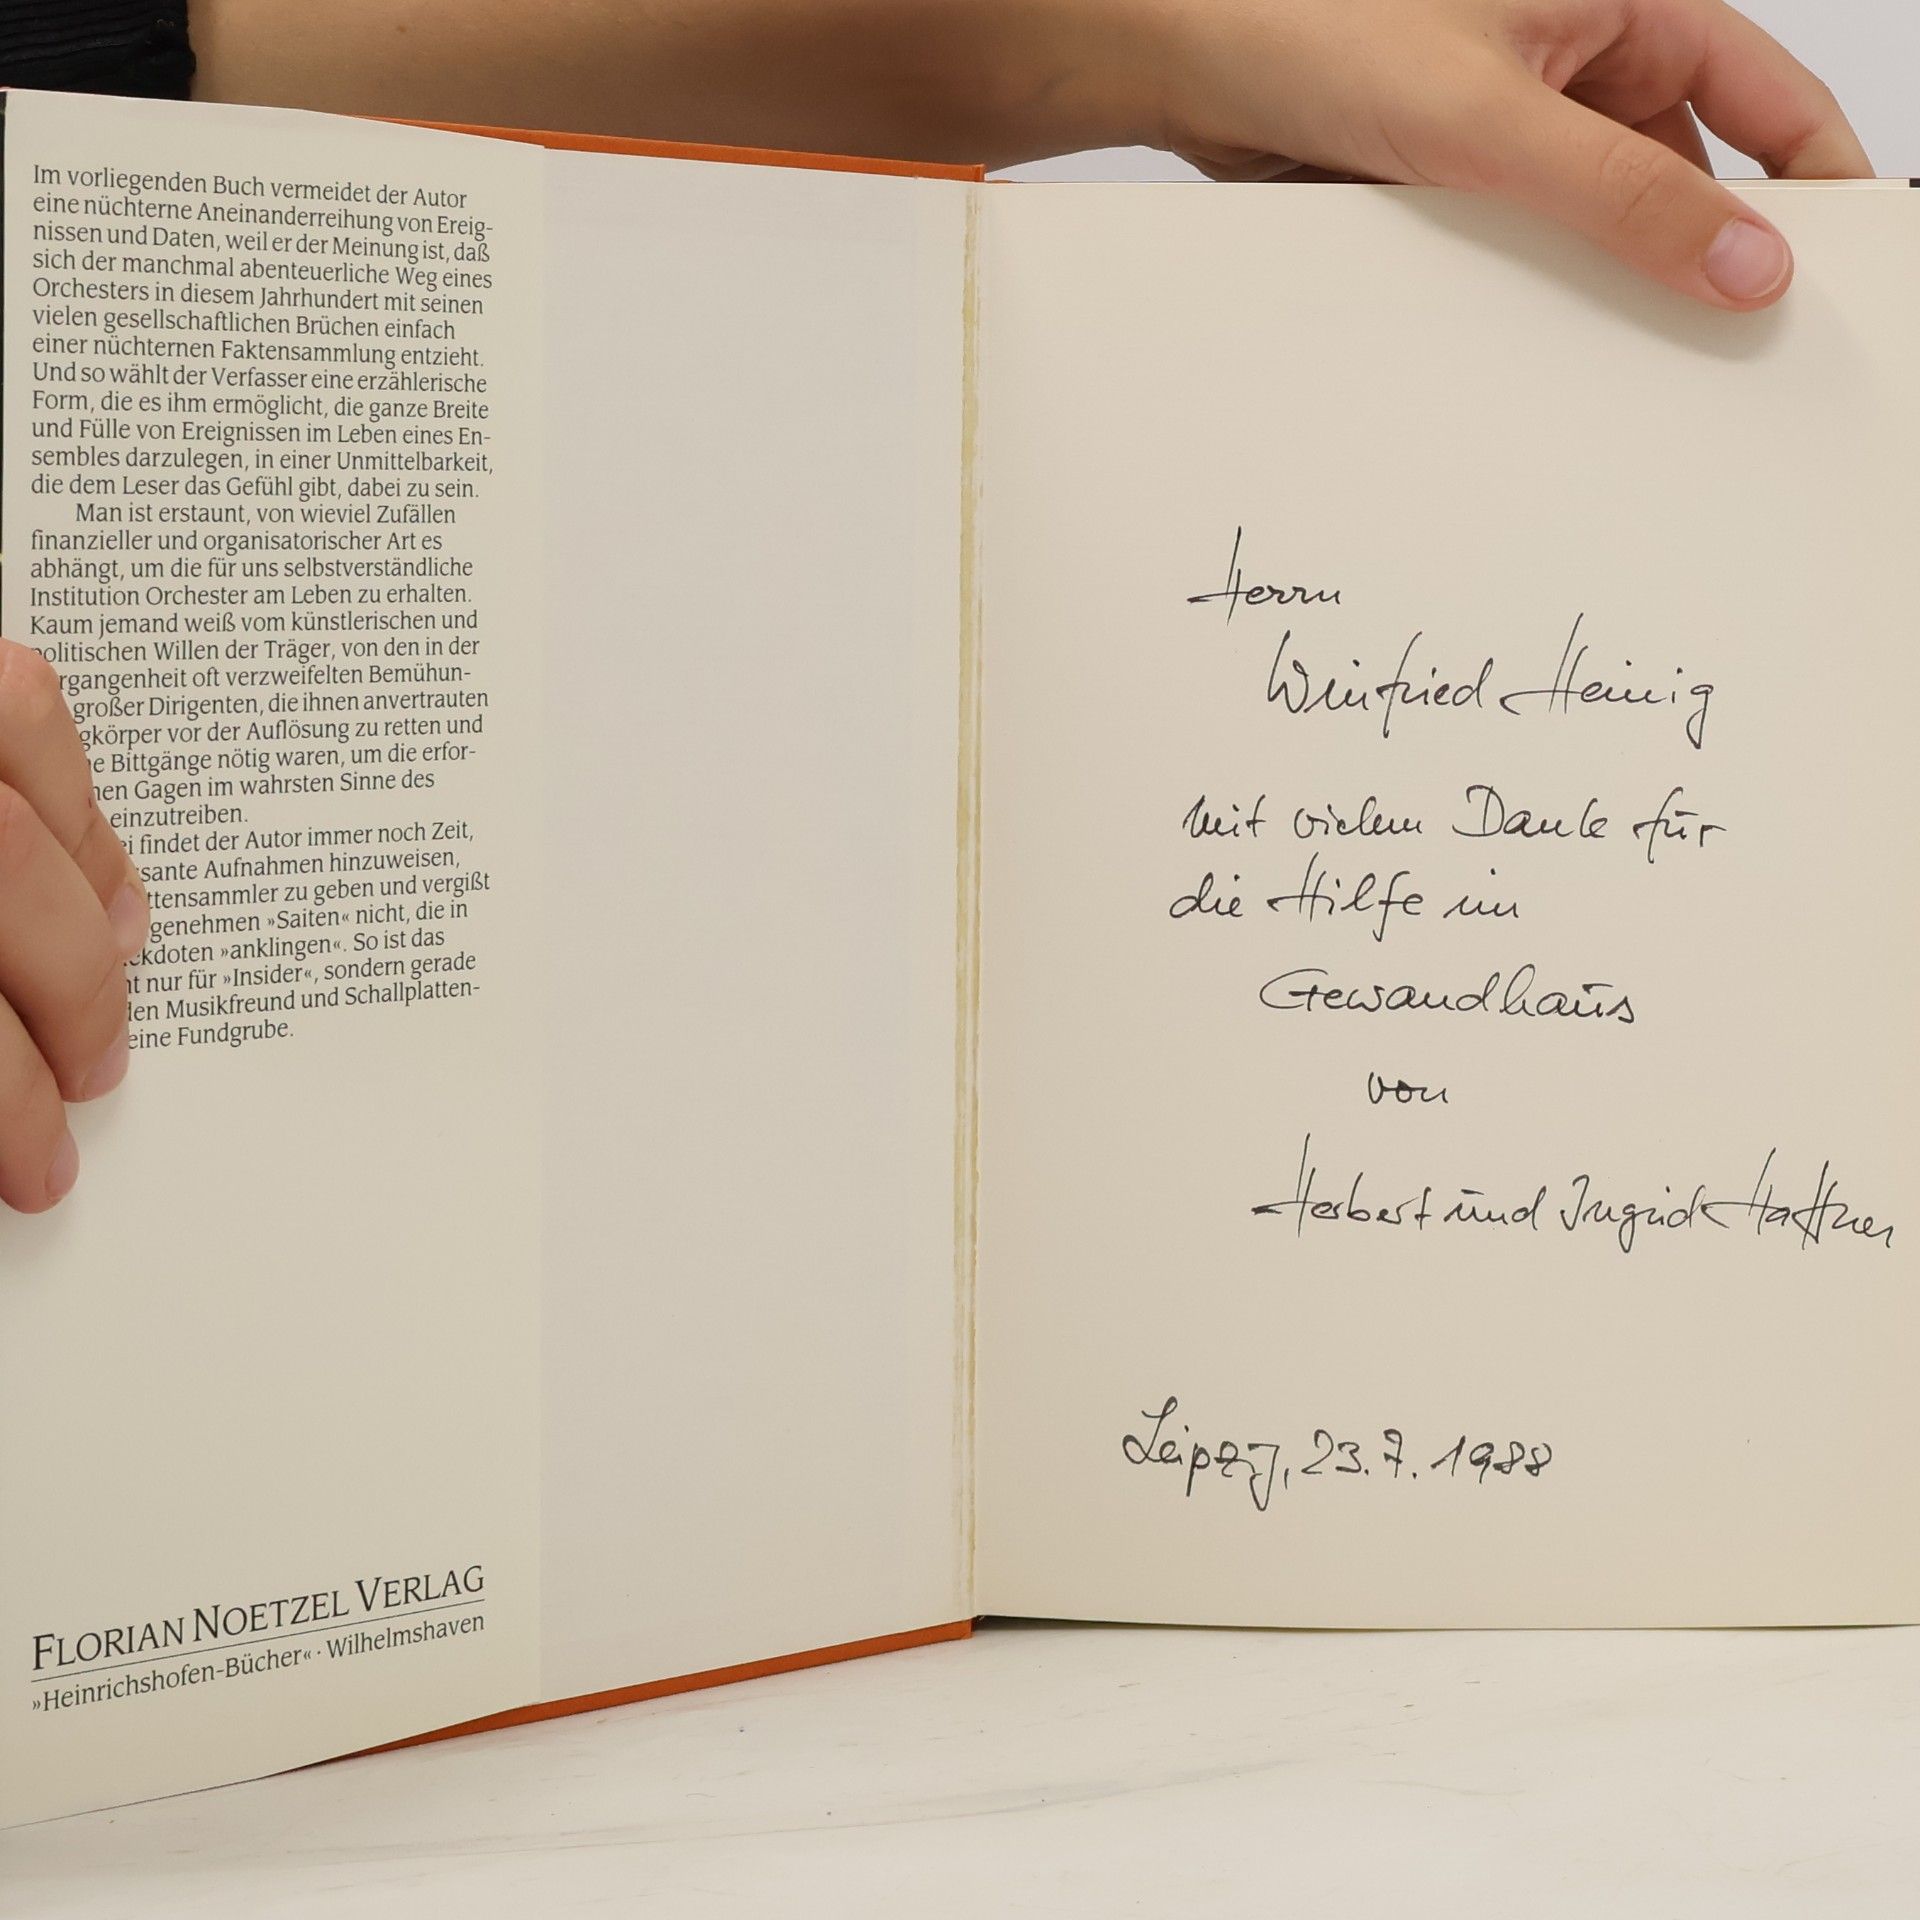 Im vorliegenden Buch vermeidet der Autor
eine nüchterne Aneinanderreihung von Ereig-
nissen und Daten, weil er der Meinung ist, daß
sich der manchmal abenteuerliche Weg eines
Orchesters in diesem Jahrhundert mit seinen
vielen gesellschaftlichen Brüchen einfach
einer nüchternen Faktensammlung entzieht.
Und so wählt der Verfasser eine erzählerische
Form, die es ihm ermöglicht, die ganze Breite
und Fülle von Ereignissen im Leben eines En-
sembles darzulegen, in einer Unmittelbarkeit,
die dem Leser das Gefühl gibt, dabei zu sein.
Man ist erstaunt, von wieviel Zufällen
finanzieller und organisatorischer Art es
abhängt, um die für uns selbstverständliche
Institution Orchester am Leben zu erhalten.
Kaum jemand weiß vom künstlerischen und
politischen Willen der Träger, von den in der
rgangenheit oft verzweifelten Bemühun-
großer Dirigenten, die ihnen anvertrauten
gkörper vor der Auflösung zu retten und
e Bittgänge nötig waren, um die erfor-
hen Gagen im wahrsten Sinne des
einzutreiben.
ei findet der Autor immer noch Zeit,
sante Aufnahmen hinzuweisen,
ttensammler zu geben und vergißt
genehmen »Saiten« nicht, die in
ekdoten »anklingen«. So ist das
ht nur für »Insider«, sondern gerade
den Musikfreund und Schallplatten-
eine Fundgrube.
FLORIAN NOETZEL VERLAG
»Heinrichshofen-Bücher« · Wilhelmshaven
Herrn
Winfried Heinig
mit vielem Dank für
die Hilfe im
Gewandhaus
von
Herbert und Ingrid Haffner
Leipzig, 23.7.1988